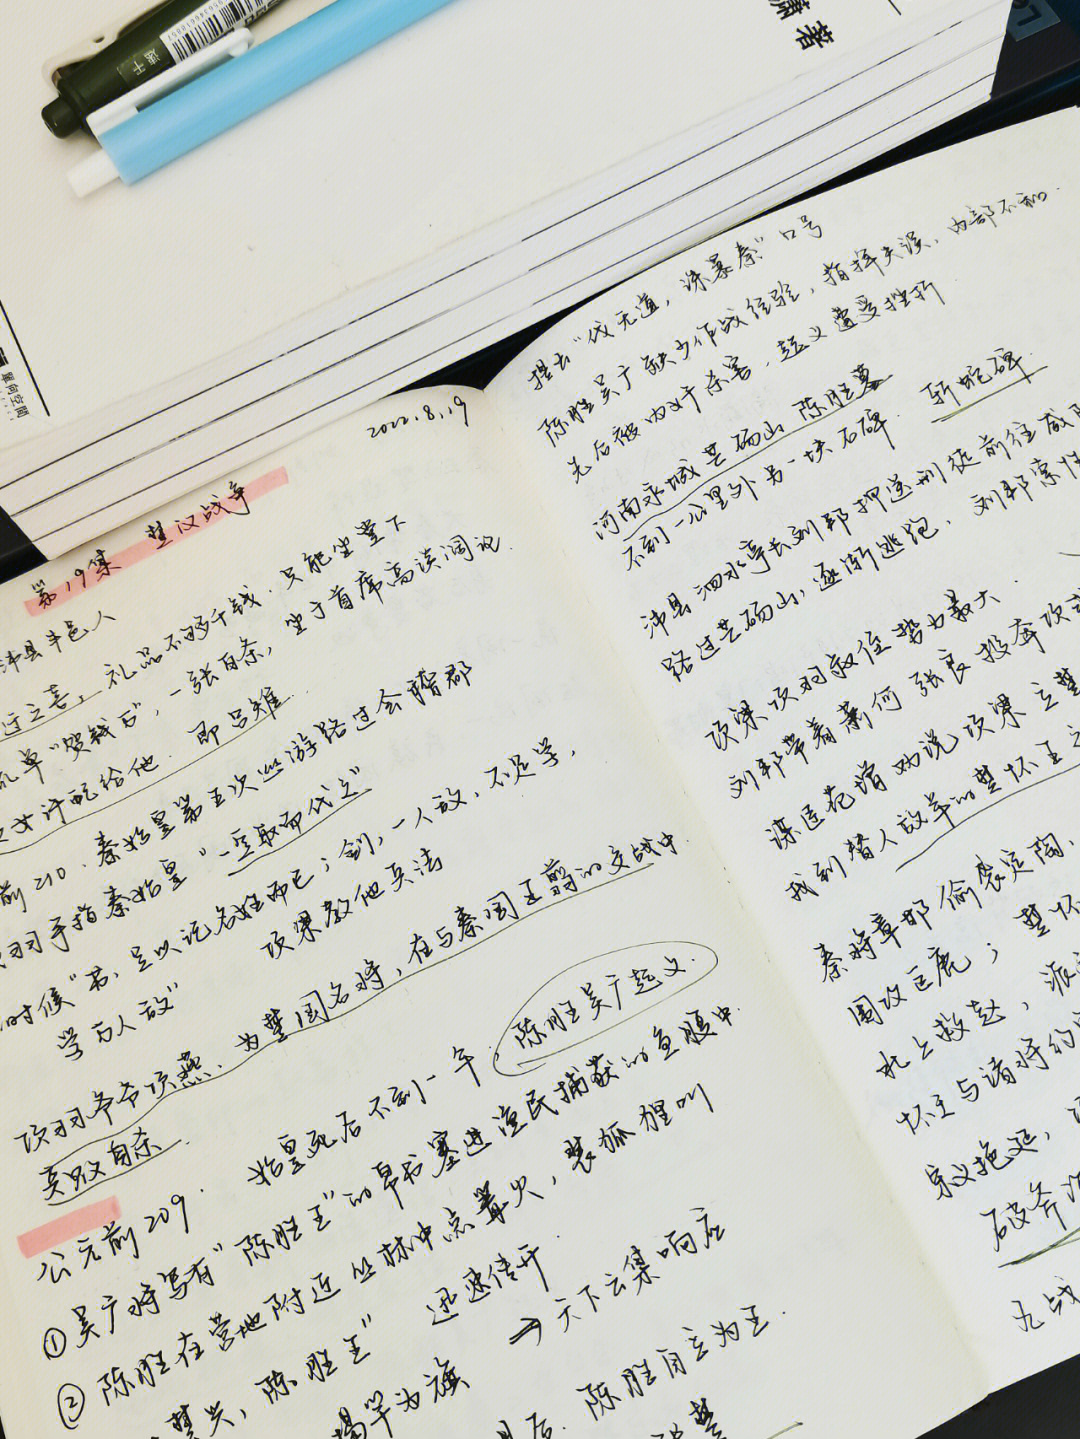 速干
潇 著
單向空間
2022.8.19
第19集 楚汉战争
沛县丰邑人
迁之喜,礼品不够千钱,只能坐堂下
单"贺钱万",一张白条,坐于首席高谈阔论
女许配给他.即吕雉
前210.秦始皇第五次巡游路过会稽郡
羽手指秦始皇"一定取而代之"
时候"书,足以记名姓而已;剑,一人敌,不足学,
学万人敌" 项梁教他兵法
项羽爷爷项燕,为楚国名将,在与秦国王翦的交战中
兵败自杀
公元前209. 始皇死后不到一年,陈胜吴广起义.
①吴广将写有"陈胜王"的帛书塞进渔民捕获的鱼腹中
②陈胜在营地附近丛林中点篝火,装狐狸叫
楚兴,陈胜王" 迅速传开
揭竿为旗 → 天下云集响应
月后.陈胜自立为王.
楚
提出"伐无道,诛暴秦"口号
陈胜吴广缺少作战经验,指挥失误,内部不和.
先后被内奸杀害,起义遭受挫折
河南永城芒砀山 陈胜墓
不到一公里外另一块石碑. 斩蛇碑
沛县泗水亭长刘邦押送刑徒前往咸
路过芒砀山,逐渐逃跑,刘邦索性
项梁项羽叔侄势力最大
刘邦带着萧何 张良投奔项
谋臣范增劝说项梁立楚
找到替人放羊的楚怀王之
秦将章邯偷袭定陶,
围攻巨鹿;楚怀
北上救赵,派
怀王与诸将约
宋义拖延,
破斧沉
九战